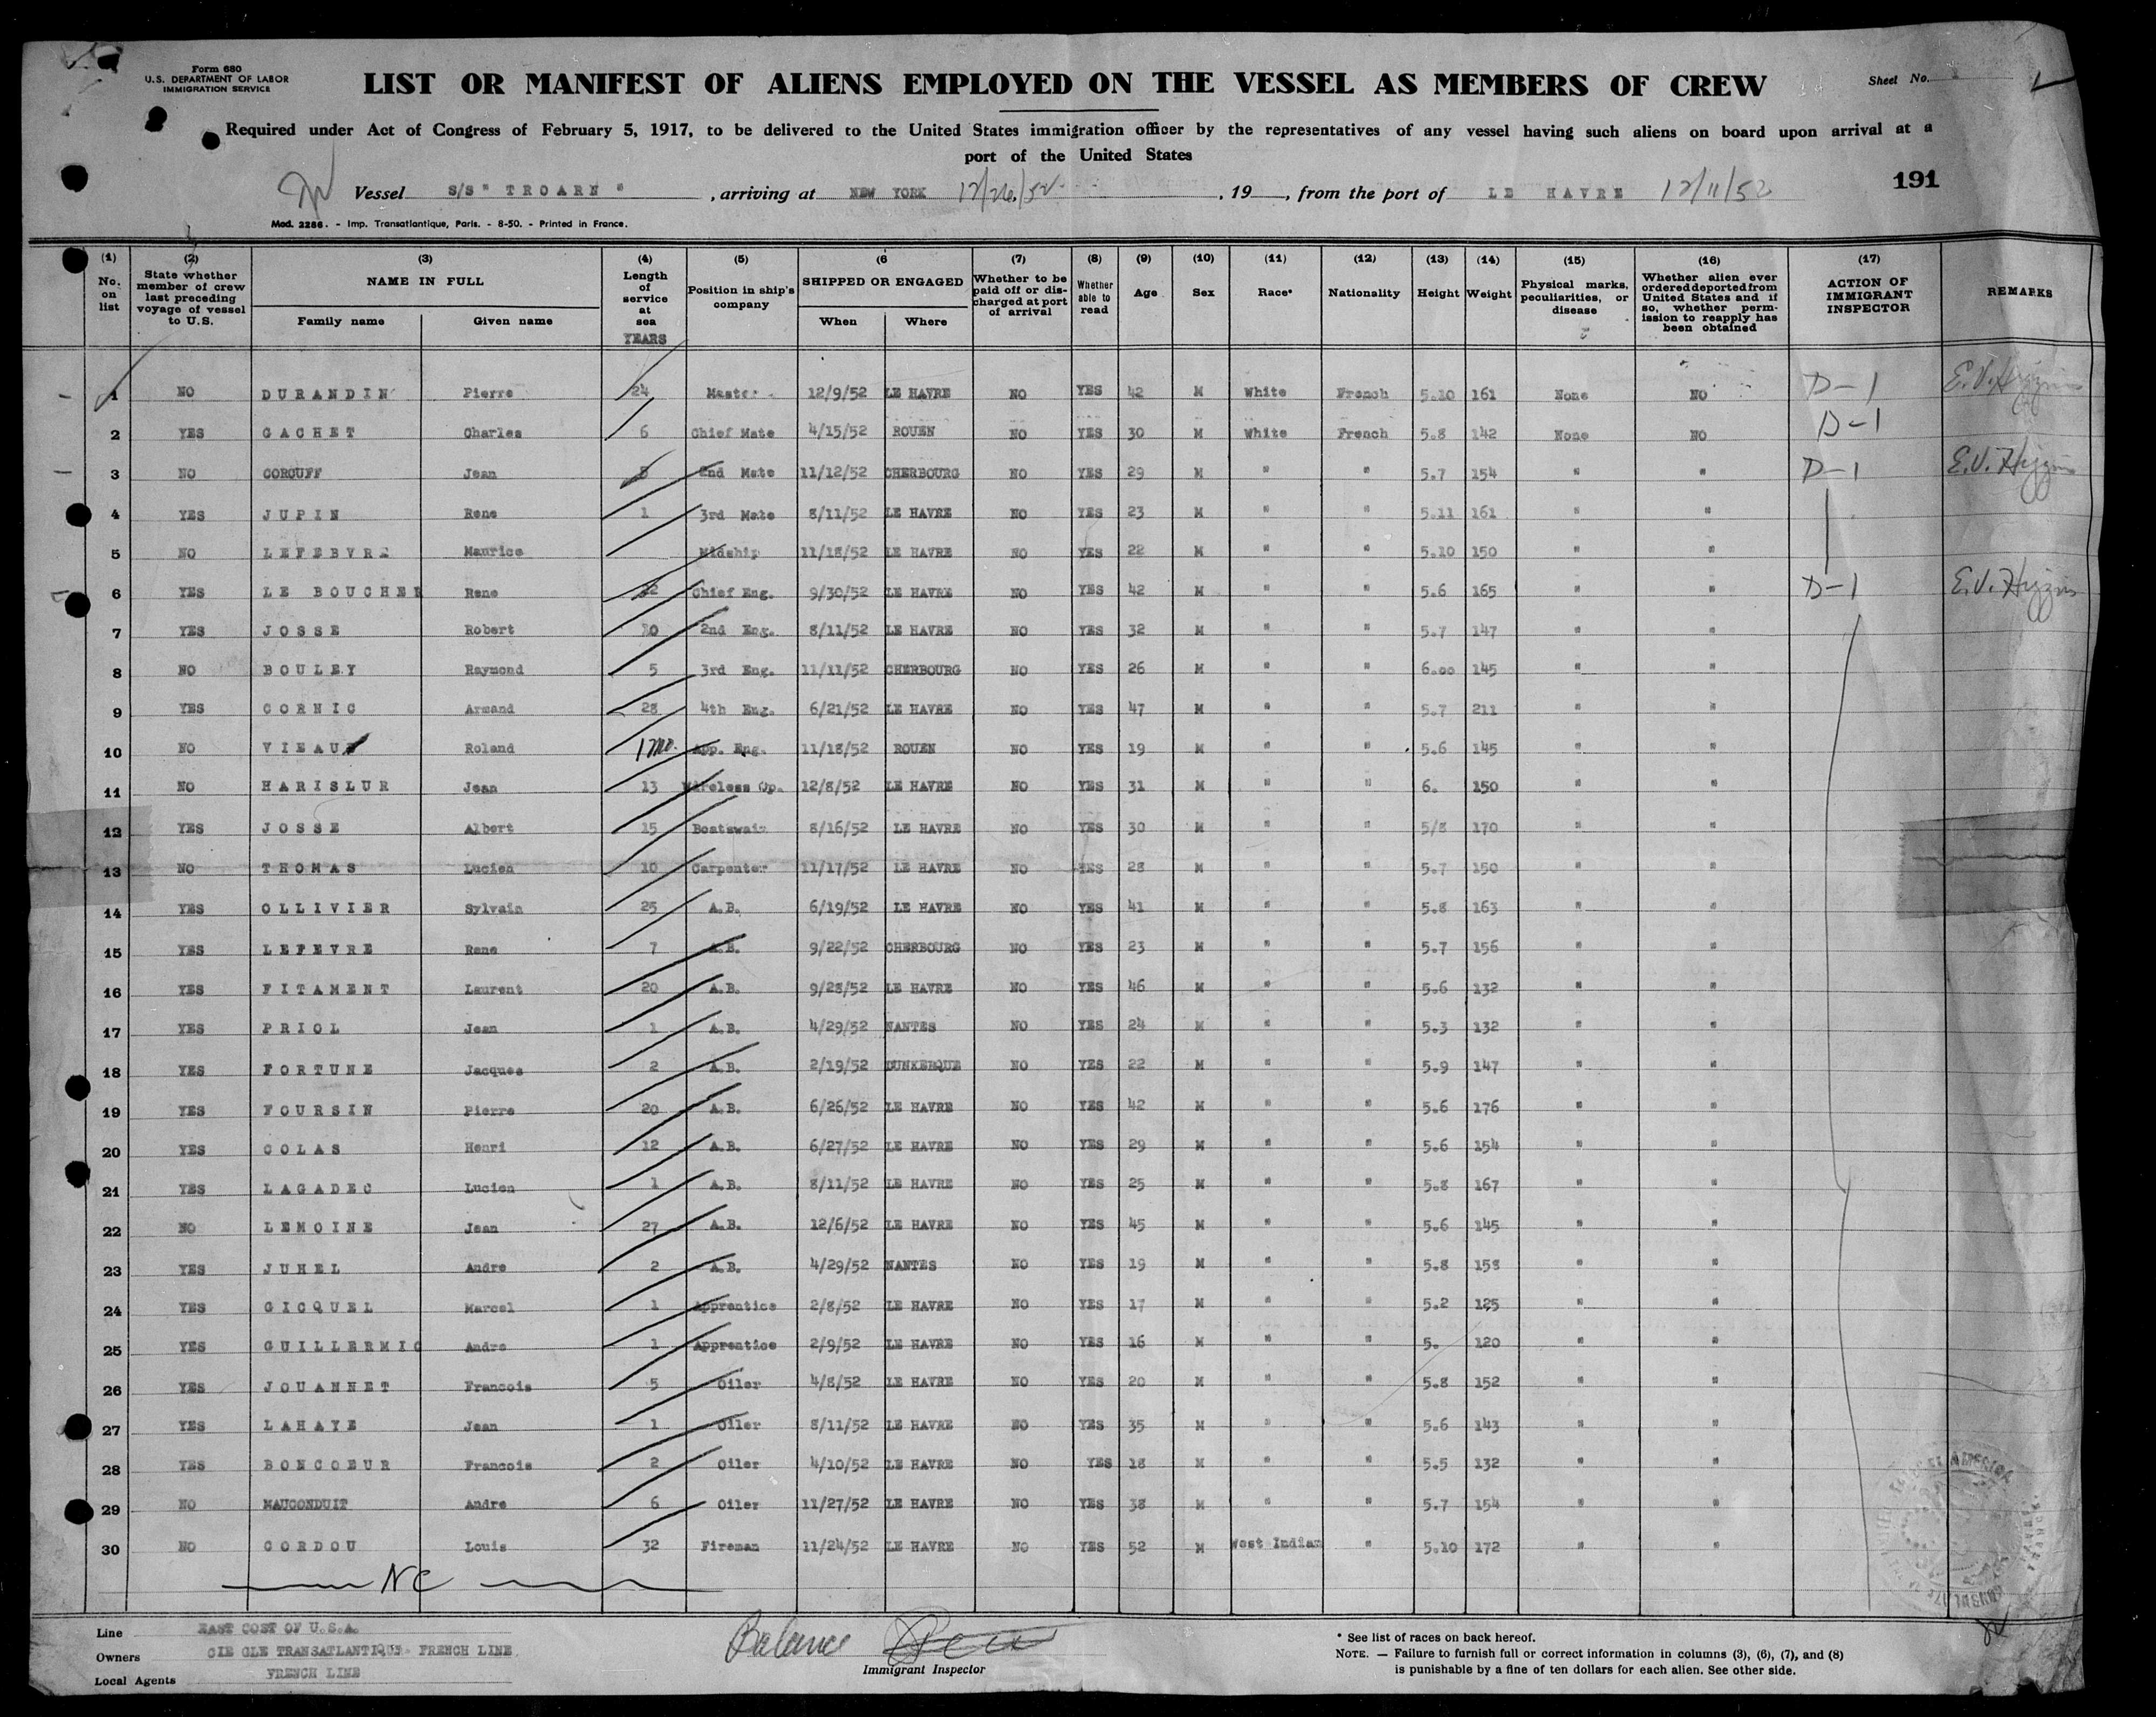 Form 680
U.S. DEPARTMENT OF LABOR
IMMIGRATION SERVICE
LIST OR MANIFEST OF ALIENS EMPLOYED ON THE VESSEL AS MEMBERS OF CREW
Sheet No.
Required under Act of Congress of February 5, 1917, to be delivered to the United States immigration officer by the representatives of any vessel having such aliens on board upon arrival at a
port of the United States
Vessel S/S " TROARN " , arriving at NEW YORK 12/26/52 , 19 , from the port of LE HAVRE 12/11/52 191
Mod. 2286. - Imp. Transatlantique, Paris. - 8-50. - Printed in France.
(1) No. on list (2) State whether member of crew last preceding voyage of vessel to U.S. (3) NAME IN FULL Family name Given name (4) Length of service at sea YEARS (5) Position in ship's company (6 SHIPPED OR ENGAGED When Where (7) Whether to be paid off or discharged at port of arrival (8) Whether able to read (9) Age (10) Sex (11) Race* (12) Nationality (13) Height (14) Weight (15) Physical marks, peculiarities, or disease (16) Whether alien ever ordered deported from United States and if so, whether permission to reapply has been obtained (17) ACTION OF IMMIGRANT INSPECTOR REMARKS
1 NO DURANDIN Pierre 24 Master 12/9/52 LE HAVRE NO YES 42 M White French 5.10 161 None NO D-1 E.V. Higgins
2 YES GACHET Charles 6 Chief Mate 4/15/52 ROUEN NO YES 30 M White French 5.8 142 None NO D-1
3 NO CORCUFF Jean 5 2nd Mate 11/12/52 CHERBOURG NO YES 29 M " " 5.7 154 " " D-1 E.V. Higgins
4 YES JUPIN Rene 1 3rd Mate 8/11/52 LE HAVRE NO YES 23 M " " 5.11 161 " "
5 NO LEFEBVRE Maurice Midship 11/18/52 LE HAVRE NO YES 22 M " " 5.10 150 " "
6 YES LE BOUCHER Rene 22 Chief Eng. 9/30/52 LE HAVRE NO YES 42 M " " 5.6 165 " " D-1 E.V. Higgins
7 YES JOSSE Robert 10 2nd Eng. 8/11/52 LE HAVRE NO YES 32 M " " 5.7 147 " "
8 NO BOULEY Raymond 5 3rd Eng. 11/11/52 CHERBOURG NO YES 26 M " " 6.00 145 " "
9 YES CORNIC Armand 28 4th Eng. 6/21/52 LE HAVRE NO YES 47 M " " 5.7 211 " "
10 NO VIEAU Roland 1 mo. App. Eng. 11/18/52 ROUEN NO YES 19 M " " 5.6 145 " "
11 NO HARISLUR Jean 13 Wireless Op. 12/8/52 LE HAVRE NO YES 31 M " " 6. 150 " "
12 YES JOSSE Albert 15 Boatswain 8/16/52 LE HAVRE NO YES 30 M " " 5/8 170 " "
13 NO THOMAS Lucien 10 Carpenter 11/17/52 LE HAVRE NO YES 28 M " " 5.7 150 " "
14 YES OLLIVIER Sylvain 25 A.B. 6/19/52 LE HAVRE NO YES 41 M " " 5.8 163 " "
15 YES LEFEVRE Rene 7 A.B. 9/22/52 CHERBOURG NO YES 23 M " " 5.7 156 " "
16 YES FITAMENT Laurent 20 A.B. 9/28/52 LE HAVRE NO YES 46 M " " 5.6 132 " "
17 YES PRIOL Jean 1 A.B. 4/29/52 NANTES NO YES 24 M " " 5.3 132 " "
18 YES FORTUNE Jacques 2 A.B. 2/19/52 DUNKERQUE NO YES 22 M " " 5.9 147 " "
19 YES FOURSIN Pierre 20 A.B. 6/26/52 LE HAVRE NO YES 42 M " " 5.6 176 " "
20 YES COLAS Henri 12 A.B. 6/27/52 LE HAVRE NO YES 29 M " " 5.6 154 " "
21 YES LAGADEC Lucien 1 A.B. 8/11/52 LE HAVRE NO YES 25 M " " 5.8 167 " "
22 NO LEMOINE Jean 27 A.B. 12/6/52 LE HAVRE NO YES 45 M " " 5.6 145 " "
23 YES JUHEL Andre 2 A.B. 4/29/52 NANTES NO YES 19 M " " 5.8 158 " "
24 YES GICQUEL Marcel 1 Apprentice 2/8/52 LE HAVRE NO YES 17 M " " 5.2 125 " "
25 YES GUILLERMIC Andre 1 Apprentice 2/9/52 LE HAVRE NO YES 16 M " " 5. 120 " "
26 YES JOUANNET Francois 5 Oiler 4/8/52 LE HAVRE NO YES 20 M " " 5.8 152 " "
27 YES LAHAYE Jean 1 Oiler 8/11/52 LE HAVRE NO YES 35 M " " 5.6 143 " "
28 YES BONCOEUR Francois 2 Oiler 4/10/52 LE HAVRE NO YES 18 M " " 5.5 132 " "
29 NO MAUCONDUIT Andre 6 Oiler 11/27/52 LE HAVRE NO YES 38 M " " 5.7 154 " "
30 NO CORDOU Louis 32 Fireman 11/24/52 LE HAVRE NO YES 52 M West Indian " 5.10 172 " "
NC
Line EAST COST OF U.S.A.
Owners CIE GLE TRANSATLANTIQUE- FRENCH LINE
Local Agents FRENCH LINE
Balance
Immigrant Inspector
* See list of races on back hereof.
NOTE. — Failure to furnish full or correct information in columns (3), (6), (7), and (8)
is punishable by a fine of ten dollars for each alien. See other side.